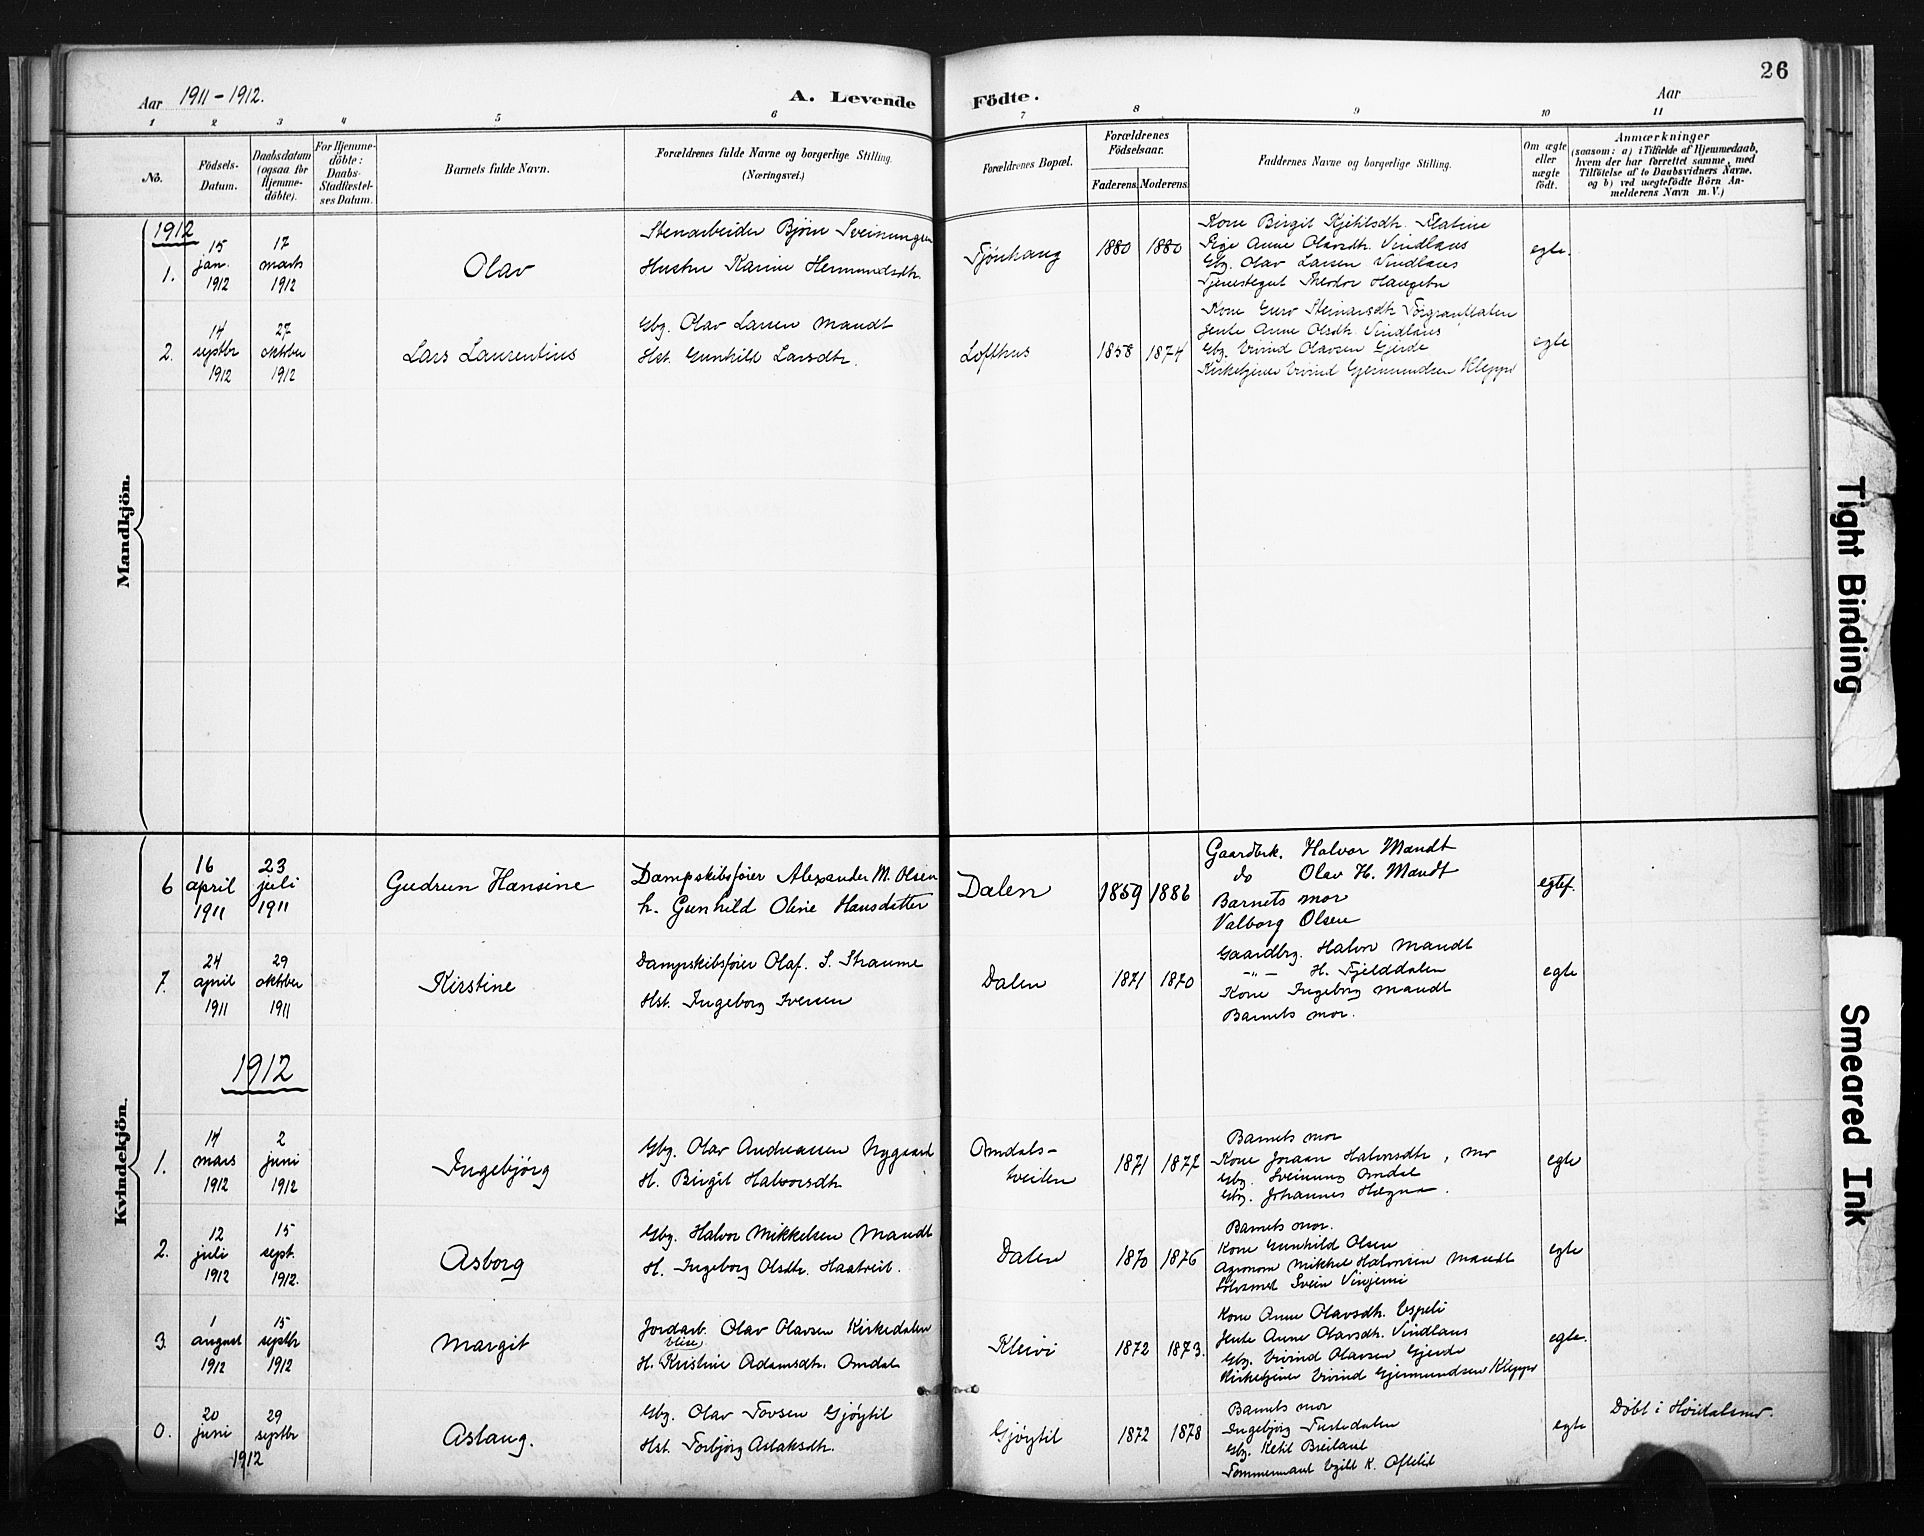 Aar 1911-1912.
A. Levende Födte.
Aar
26
1 2 3 4 5 6 7 8 9 10 11
No.
Födsels-
Datum.
Daabsdatum
(ogsaa for
Hjemme-
döbte).
For Hjemme-
döbte:
Daabs-
Stadfæstel-
ses Datum.
Barnets fulde Navn.
Forældrenes fulde Navne og borgerlige Stilling.
(Næringsvei.)
Forældrenes Bopæl.
Forældrenes
Födselsaar.
Faderens. Moderens.
Faddernes Navne og borgerlige Stilling.
Om ægte
eller
uægte
födt.
Anmærkninger
(saasom: a) i Tilfælde af Hjemmedaab,
hvem der har forrettet samme, med
Tilföielse af to Daabsvidners Navne,
og b) ved uægtefödte Börn An-
melderens Navn m. V.)
Mandkjön.
1912
1.
15
jan.
1912
17
marts
1912
Olav
Stenarbeider Bjørn Sveinungsen
Hustru Karine Hermundsdtr.
Tjönhaug
1880 1880
Kone Birgit Kjetilsdtr. Flatine
Pige Anne Olavsdtr. Vindlaus
Gbg. Olav Larsen Vindlaus
Tjenestegut Theodor Haugebn
egte.
2.
14
septbr
1912
27
oktober
1912
Lars Laurentius
Gbg. Olav Larsen Mandt
Hst. Gunhild Larsdtr.
Lofthus
1858 1874
Kone Guro Steinarsdtr.
Jente Anne Olsdtr. Vindlaus
Gbg. Eivind Olavsen Gjerde
Kirketjener Eivind Gjermundsen Kleppo
egte
Kvindekjön.
6
16
april
1911
23
juli
1911
Gudrun Hansine
Dampskibsfører Alexander M. Olsen
h. Gunhild Oline Hansdatter
Dalen
1859 1886
Gaardbr. Halvor Mandt
do Olav H. Mandt
Barnets mor
Valborg Olsen
egtef.
7.
24
april
1911
29
oktober
1911
Kirstine
Dampskibsfører Olaf. S. Straume
Hst. Ingeborg Iversen
Dalen
1871 1870
Gaardbrg. Halvor Mandt
-"- H. Fjelddalen
Kone Ingeborg Mandt
Barnets mor.
egte
1912
1.
14
mars
1912
2
juni
1912
Ingebjörg
Gbg. Olav Andreassen Nygaard
H. Birgit Halvorsdtr.
Omdals-
sveiten
1871 1872
Barnets mor
Kone Joraan Halvorsdtr, mo
Gbg. Sveinung Omdal
Gbg. Johannes Hægna.
egte
2.
12
juli
1912
15
sept.
1912.
Asborg
Gbg. Halvor Mikkelsen Mandt
H. Ingeborg Olsdtr. Haatveit.
Dalen
1870 1876
Barnets mor.
Kone Gunhild Olsen
Agronom Mikkel Halvorsen Mandt
Sölvsmed Svein Vinjerui
egte
3.
1
august
1912
15
septbr
1912
Margit
Jordarb. Olav Olavsen Kirkedalen
Elise
H. Kristine Adamsdtr. Omdal
Kleivi
1872 1873.
Kone Anne Olavsdtr. Espeli
Jente Anne Olavsdtr. Vindlaus
Gbg. Eivind Olavsen Gjerde
Kirketjener Eivind Gjermundsen Kleppo
egte.
0.
20
juni
29
septbr
1912
Aslaug.
Gbg. Olav Tovsen Gjöytil
Hst. Torbjörg Aslaksdtr.
Gjöytil
1872 1878
Barnets mor
Ingebjörg
Gbg. Ketil Breiland
Tømmermand Egild K. Ofteli
egte
Döbt i Höidalsmo.
Tight Binding
Smeared Ink